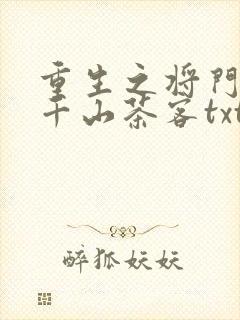 重生之将門
千山茶客txt
醉狐妖妖